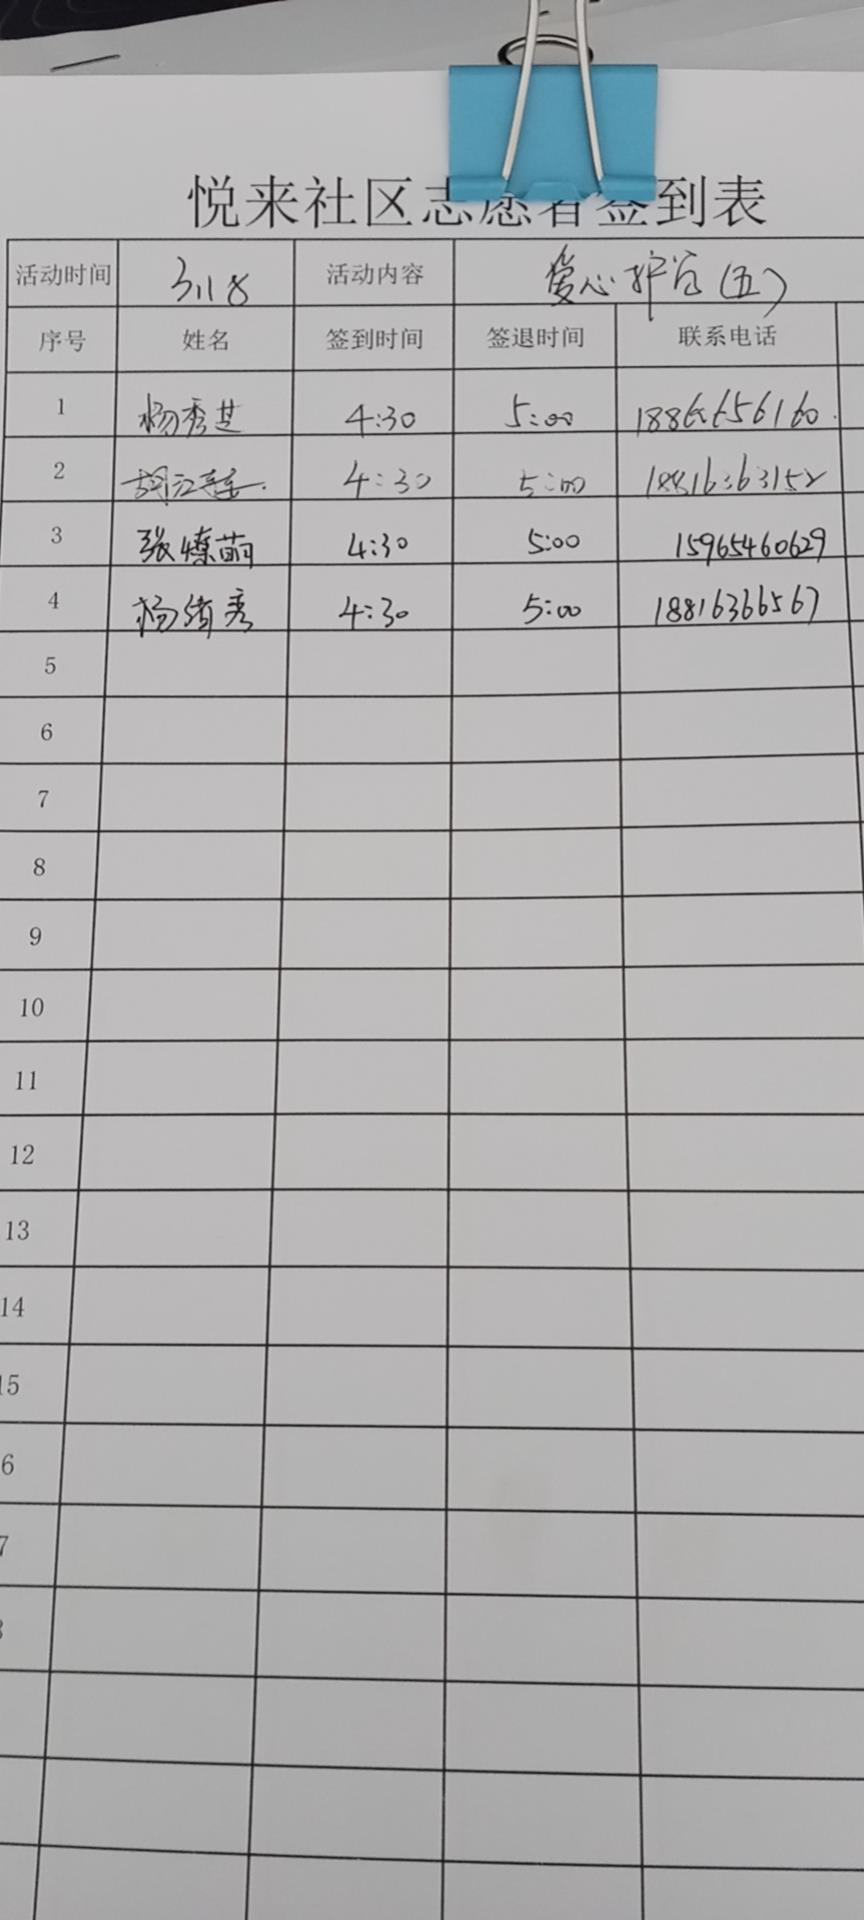 悦来社区志愿者签到表
活动时间 3.18 活动内容 爱心护官(五)
序号 姓名 签到时间 签退时间 联系电话
1 杨秀芝 4:30 5:00
2 4:30 5:00
3 张燎萌 4:30 5:00 15965460629
4 杨绪秀 4:30 5:00 18816366567
5
6
7
8
9
10
11
12
13
14
15
6
7